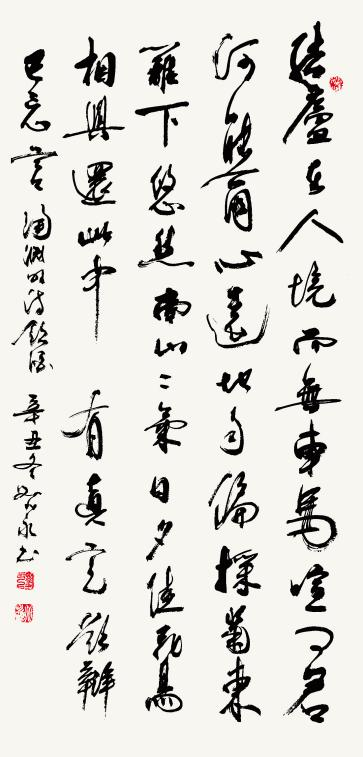 結廬在人境而無車馬喧問君
何能爾心遠地自偏採菊東
籬下悠然南山々氣日夕佳飛鳥
相與還此中有真意欲辯
已忘言陶淵明詩飲酒辛丑冬書